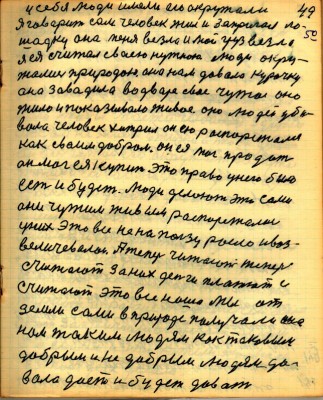 у себя люди имали его окружали 49
я говорит сам человек жил и запрягал ло- 50
шадку она меня везла и мой груз везла
я ея считал своею нужною люди окру-
жались природою, она нам давала курочку
она заводила во дворе свое чужое оно
жило и показывало живое оно людей уби-
вала человек хитрил он ею распоряжался
как своим добром. он ея мог продать
он мог ея купить это право у него было
есть и будет. люди делают это сами
они чужим живым распоряжались
у них это все не на пользу рошло и воз-
величевалось. А теперь читают теперь
считают за них деньги платят и
считают это все наше мы от
земли сами в природе получали она
нам таким людям как таковым
добрым и не добрым людям да-
вала дает и будет давать